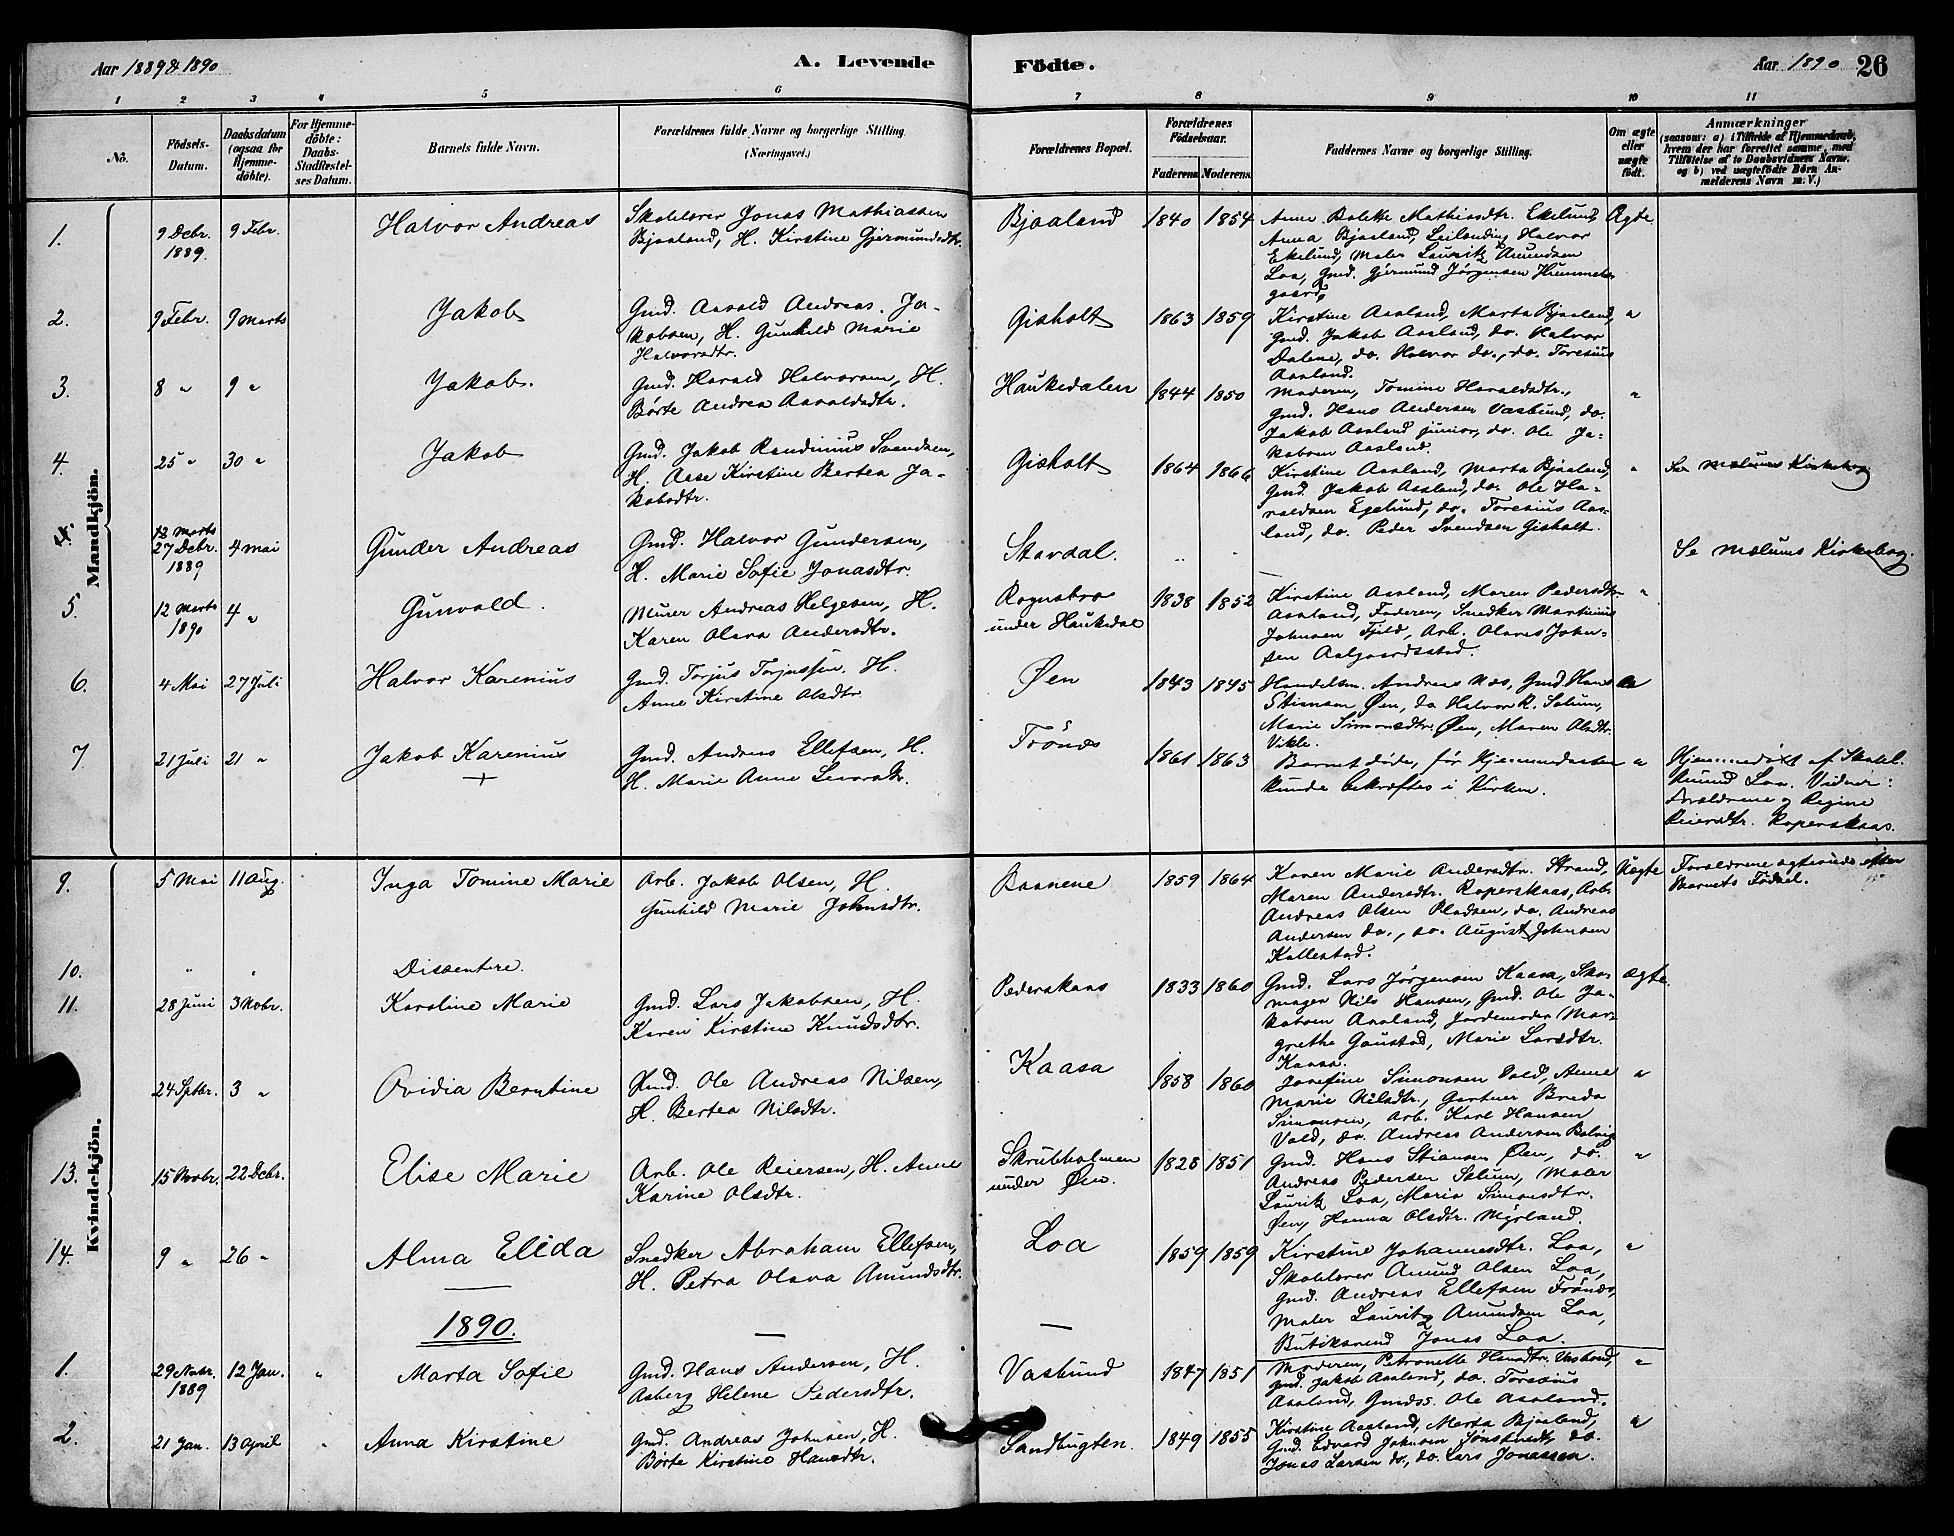 Aar 1889 & 1890
A. Levende
Födte.
Aar 1890
26
1 2 3 4 5 6 7 8 9 10 11
No.
Födsels-
Datum.
Daabsdatum
(ogsaa for
Hjemme-
döbte).
For Hjemme-
döbte:
Daabs-
Stadfæstel-
ses Datum.
Barnets fulde Navn.
Forældrenes fulde Navne og borgerlige Stilling.
(Næringsvei.)
Forældrenes Bopæl.
Forældrenes
Födselsaar.
Faderens. Moderens.
Faddernes Navne og borgerlige Stilling.
Om ægte
eller
uægte
födt.
Anmærkninger
(saasom: a) i Tilfælde af Hjemmedaab,
hvem der har forrettet samme, med
Tilföielse af to Daabsvidners Navne,
og b) ved uægtefödte Börn An-
melderens Navn m. V.)
Mandkjön.
1.
9 Debr.
1889.
9 Febr.
Halvor Andreas
Skolelærer Jonas Mathiassen
Bjaaland, H. Kirstine Gjermundsdtr.
Bjaaland
1840 1854
Anne Bolette Mathiasdtr. Ekelund
Anna Bjaaland, Leilænding Halvor
Ekelund, Maler Lauritz Amundsen
Loa, Gmd. Gjermund Jørgensen Hummel-
gaard.
Ægte
2.
9 Febr.
9 Marts
Jakob
Gmd. Aavald Andreas Ja-
kobsen, H. Gunhild Marie
Halvorsdtr.
Gisholt
1863 1859
Kirstine Aasland, Marta Bjaaland,
Gmd. Jakob Aasland, do. Halvor
Dalene, do. Halvor do., do. Toresius
Aasland.
"
3.
8 "
9 "
Jakob.
Gmd. Harald Halvorsen, H.
Børte Andrea Aavaldsdtr.
Haukedalen
1844 1850
Moderen, Tomine Haraldsdtr.,
Gmd. Hans Andersen Vasbund, do.
Jakob Aasland junior, do. Ole Ja-
kobsen Aasland.
"
4.
25 "
30 "
Jakob
Gmd. Jakob Randinius Svendsen,
H. Aase Kirstine Bertea Ja-
kobsdtr.
Gisholt
1864 1866
Kirstine Aasland, Marta Bjaaland,
Gmd. Jakob Aasland, do. Ole Ha-
raldsen Egelund, do. Toresius Aas-
land, do. Peder Svendsen Gisholt.
"
Se Mælums Kirkebog
12 Marts
27 Debr.
1889
4 Mai
Gunder Andreas
Gmd. Halvor Gundersen,
H. Marie Sofie Jonasdtr.
Stavdal.
Se Mælums Kirkebog.
5.
12 Marts
1890
4 "
Gunvald.
Murer Andreas Helgesen, H.
Karen Olava Andersdtr.
Rognsbro
under Haukedal
1838 1852
Kirstine Aasland, Maren Pedersdtr.
Aasland, Faderen, Snedker Martinius
Johnsen Fjeld, Arb. Olaves John-
sen Aalgaardsstad.
"
6.
4 Mai
27 Juli
Halvor Karenius
Gmd. Torjus Torjussen, H.
Anne Kirstine Olsdtr.
Øen
1843 1845
Handelsm. Andreas Næs, Gmd. Hans
Stiansen Øen, do Halvor R. Solum,
Marie Simonsdtr. Øen, Maren Olsdtr.
Vikle.
7
21 Juli
21 "
Jakob Karenius
+
Gmd. Andreas Ellefsen, H.
H. Marie Anne
Trönæs
1861 1863
Barnet døde, før Hjemmedaaben
kunde bekræftes i Kirken.
"
Hjemmedøbt af Skolel.
Amund Loa. Vidner:
Forældrene og Regine
Reiersdtr. Roperskaas.
Kvindekjön.
9.
5 Mai
11 Aug.
Inga Tomine Marie
Arb. Jakob Olsen, H.
Gunhild Marie Johnsdtr.
Baanene
1859 1864
Karen Marie Andersdtr. Strand,
Maren Andersdtr. Roperskaas, Arb.
Andreas Olsen Pladsen, do. Andreas
Andersen do., do. August Johnsen
Kallestad.
Uægte
Forældrene ægteviede efter
Barnets Födsel.
10.
"
"
Dissentere.
11.
28 Juni
3 Nobr.
Karoline Marie
Gmd. Lars Jakobsen, H.
Karen Kirstine Knudsdtr.
Pederskaas
1833 1860
Gmd. Lars Jørgensen Kaasa, Sko-
mager Nils Hansen, Gmd. Ole Ja-
kobsen Aasland, Jordemoder Mar-
grethe Gaustad, Marie Larsdtr.
Kaasa.
Ægte.
24 Septbr.
3 "
Ovidia Berntine
Gmd. Ole Andreas Nilsen,
H. Bertea Nilsdtr.
Kaasa
1858 1860
Josefine Simonsen Vold, Anne
Marie Nilsdtr., Gartner Breda
Simonsen, Arb. Karl Hansen
Vold, do. Andreas Andersen Bolvig
"
13.
15 Novbr.
22 Debr.
Elise Marie
Arb. Ole Reiersen, H. Anne
Karine Olsdtr.
Skrubholmen
under Øen.
1828 1851
Gmd. Hans Stiansen Øen, do.
Andreas Pedersen Solum, Maler
Lauritz Loa, Maria Simonsdtr.
Øen, Hanna Olsdtr. Myrland.
"
14.
9 "
26 "
Alma Elida
Snedker Abraham Ellefsen,
H. Petra Olava Amundsdtr.
Loa
1859 1859
Kirstine Johannesdtr. Loa,
Skolelærer Amund Olsen Loa,
Gmd. Andreas Ellefsen Trönæs,
Maler Lauritz Amundsen Loa,
Butiksvend Jonas Loa.
"
1890.
1.
29 Nobr.
1889
12 Jan.
"
Marta Sofie
Gmd. Hans Andersen, H.
Asberg Helene Pedersdtr.
Vasbund
1847 1851
Moderen, Petronelle Hansdtr. Vasbund,
gmd. Jakob Aasland, do. Toresius
Aasland, Gmdss. Ole Aasland.
"
2.
21 Jan.
13 April
"
Anna Kirstine
Gmd. Andreas Johnsen, H.
Børte Kirstine Hansdtr.
Sandbugten.
1849 1855
Kirstine Aasland, Marta Bjaaland,
Gmd. Edvard Johnsen Tønsknedt, do.
Jonas Larsen do., do. Lars Jonassen.
"